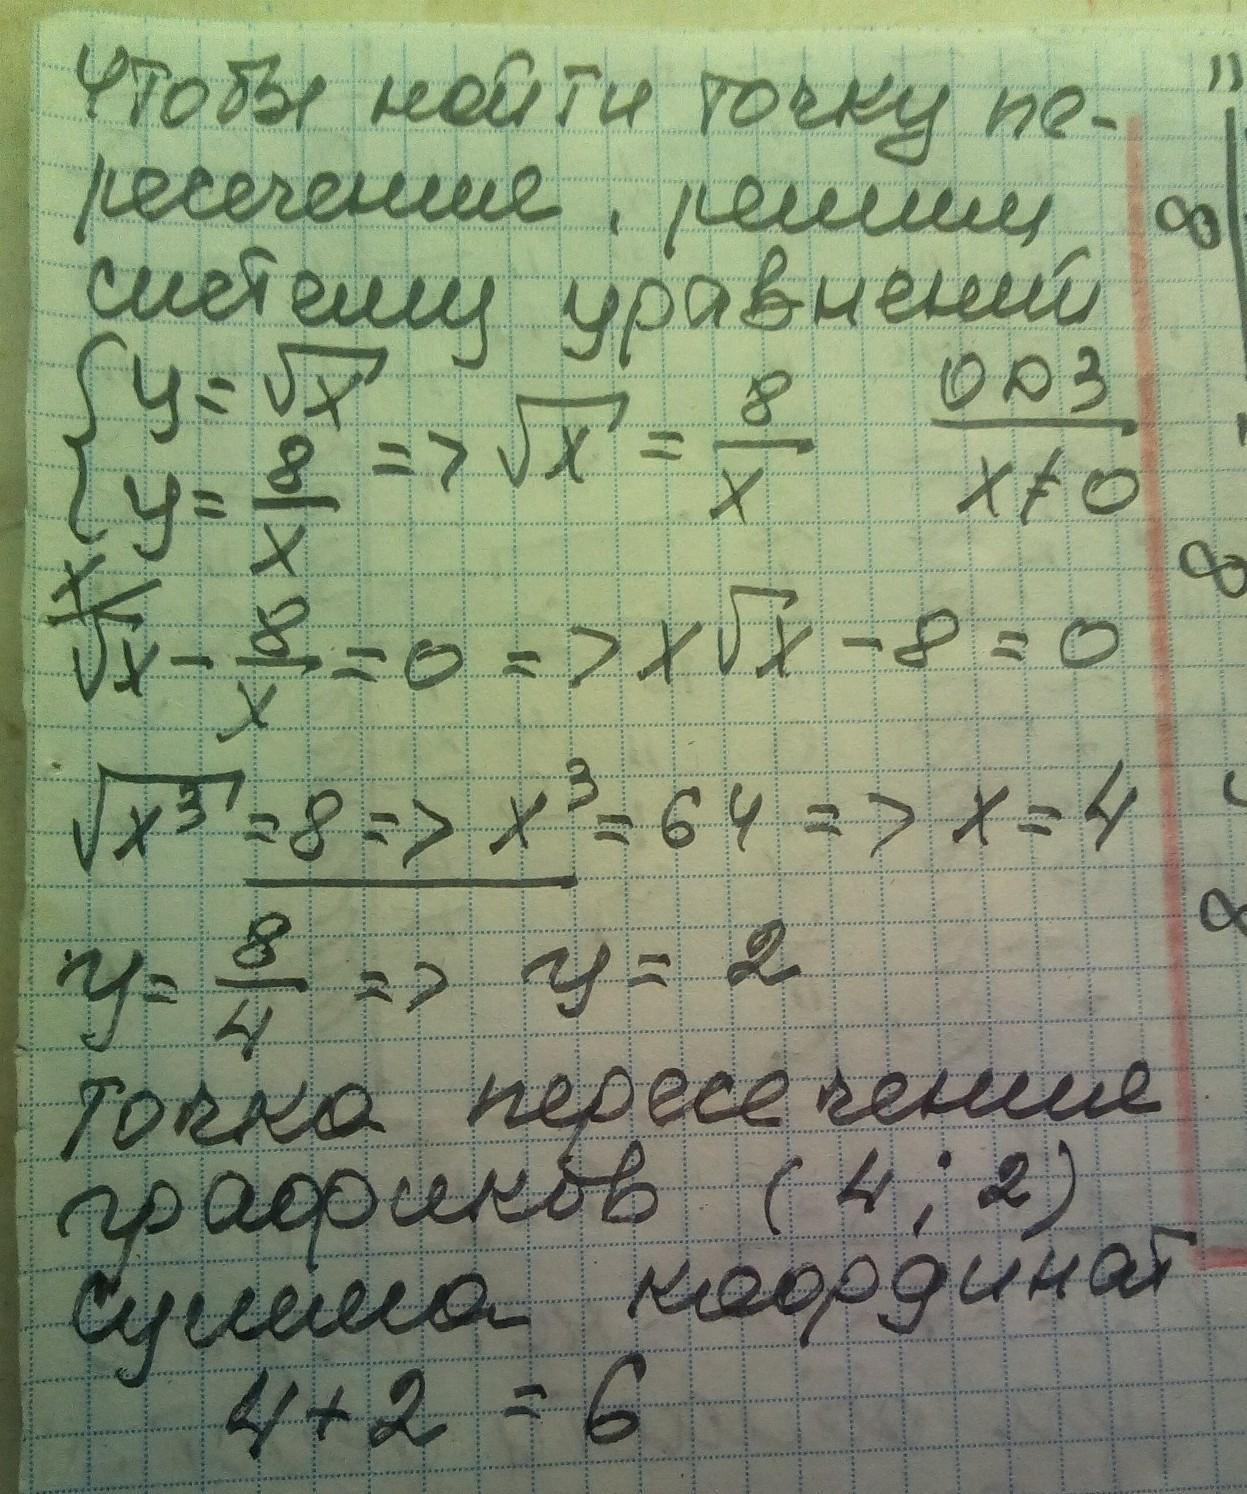 Чтобы найти точку пе-
ресечение, решим
систему уравнений
{ y = √x
y = 8/x => √x = 8/x
ОДЗ
x ≠ 0
x/
√x - 8/x = 0 => x√x - 8 = 0
√x³ = 8 => x³ = 64 => x = 4
y = 8/4 => y = 2
точка пересечение
графиков (4; 2)
сумма координат
4 + 2 = 6